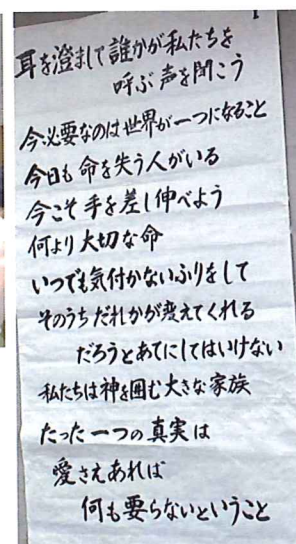 耳を澄まして誰かが私たちを
呼ぶ声を聞こう
今必要なのは世界が一つになること
今日も命を失う人がいる
今こそ手を差し伸べよう
何より大切な命
いつでも気付かないふりをして
そのうちだれかが変えてくれる
だろうとあてにしてはいけない
私たちは神を囲む大きな家族
たった一つの真実は
愛さえあれば
何も要らないということ